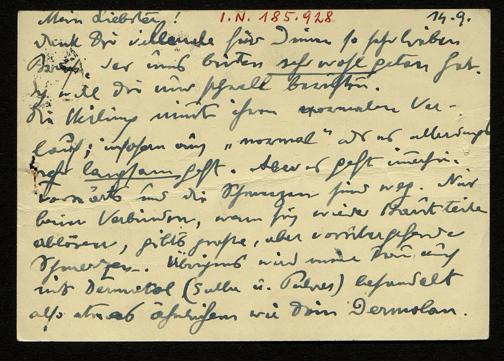 Mein Liebster! I.N. 185.928 14.9.
Dank Dir vielmals für Deinen so sehr lieben
Brief, der uns beiden sehr wohl getan hat.
Ich will Dir nur schnell berichten.
Die Heilung nimmt ihren normalen Ver-
lauf; insofern auch "normal" als es allerdings
sehr langsam geht. Aber es geht immerhin
vorwärts und die Schmerzen sind weg. Nur
beim Verbinden, wenn sich wieder Hautteile
ablösen, gibts große, aber vorübergehende
Schmerzen. Übrigens wird meine Frau auch
mit Dermetol (Salbe u. Pulver) behandelt
also etwas ähnlichem wie Dein Dermolan.